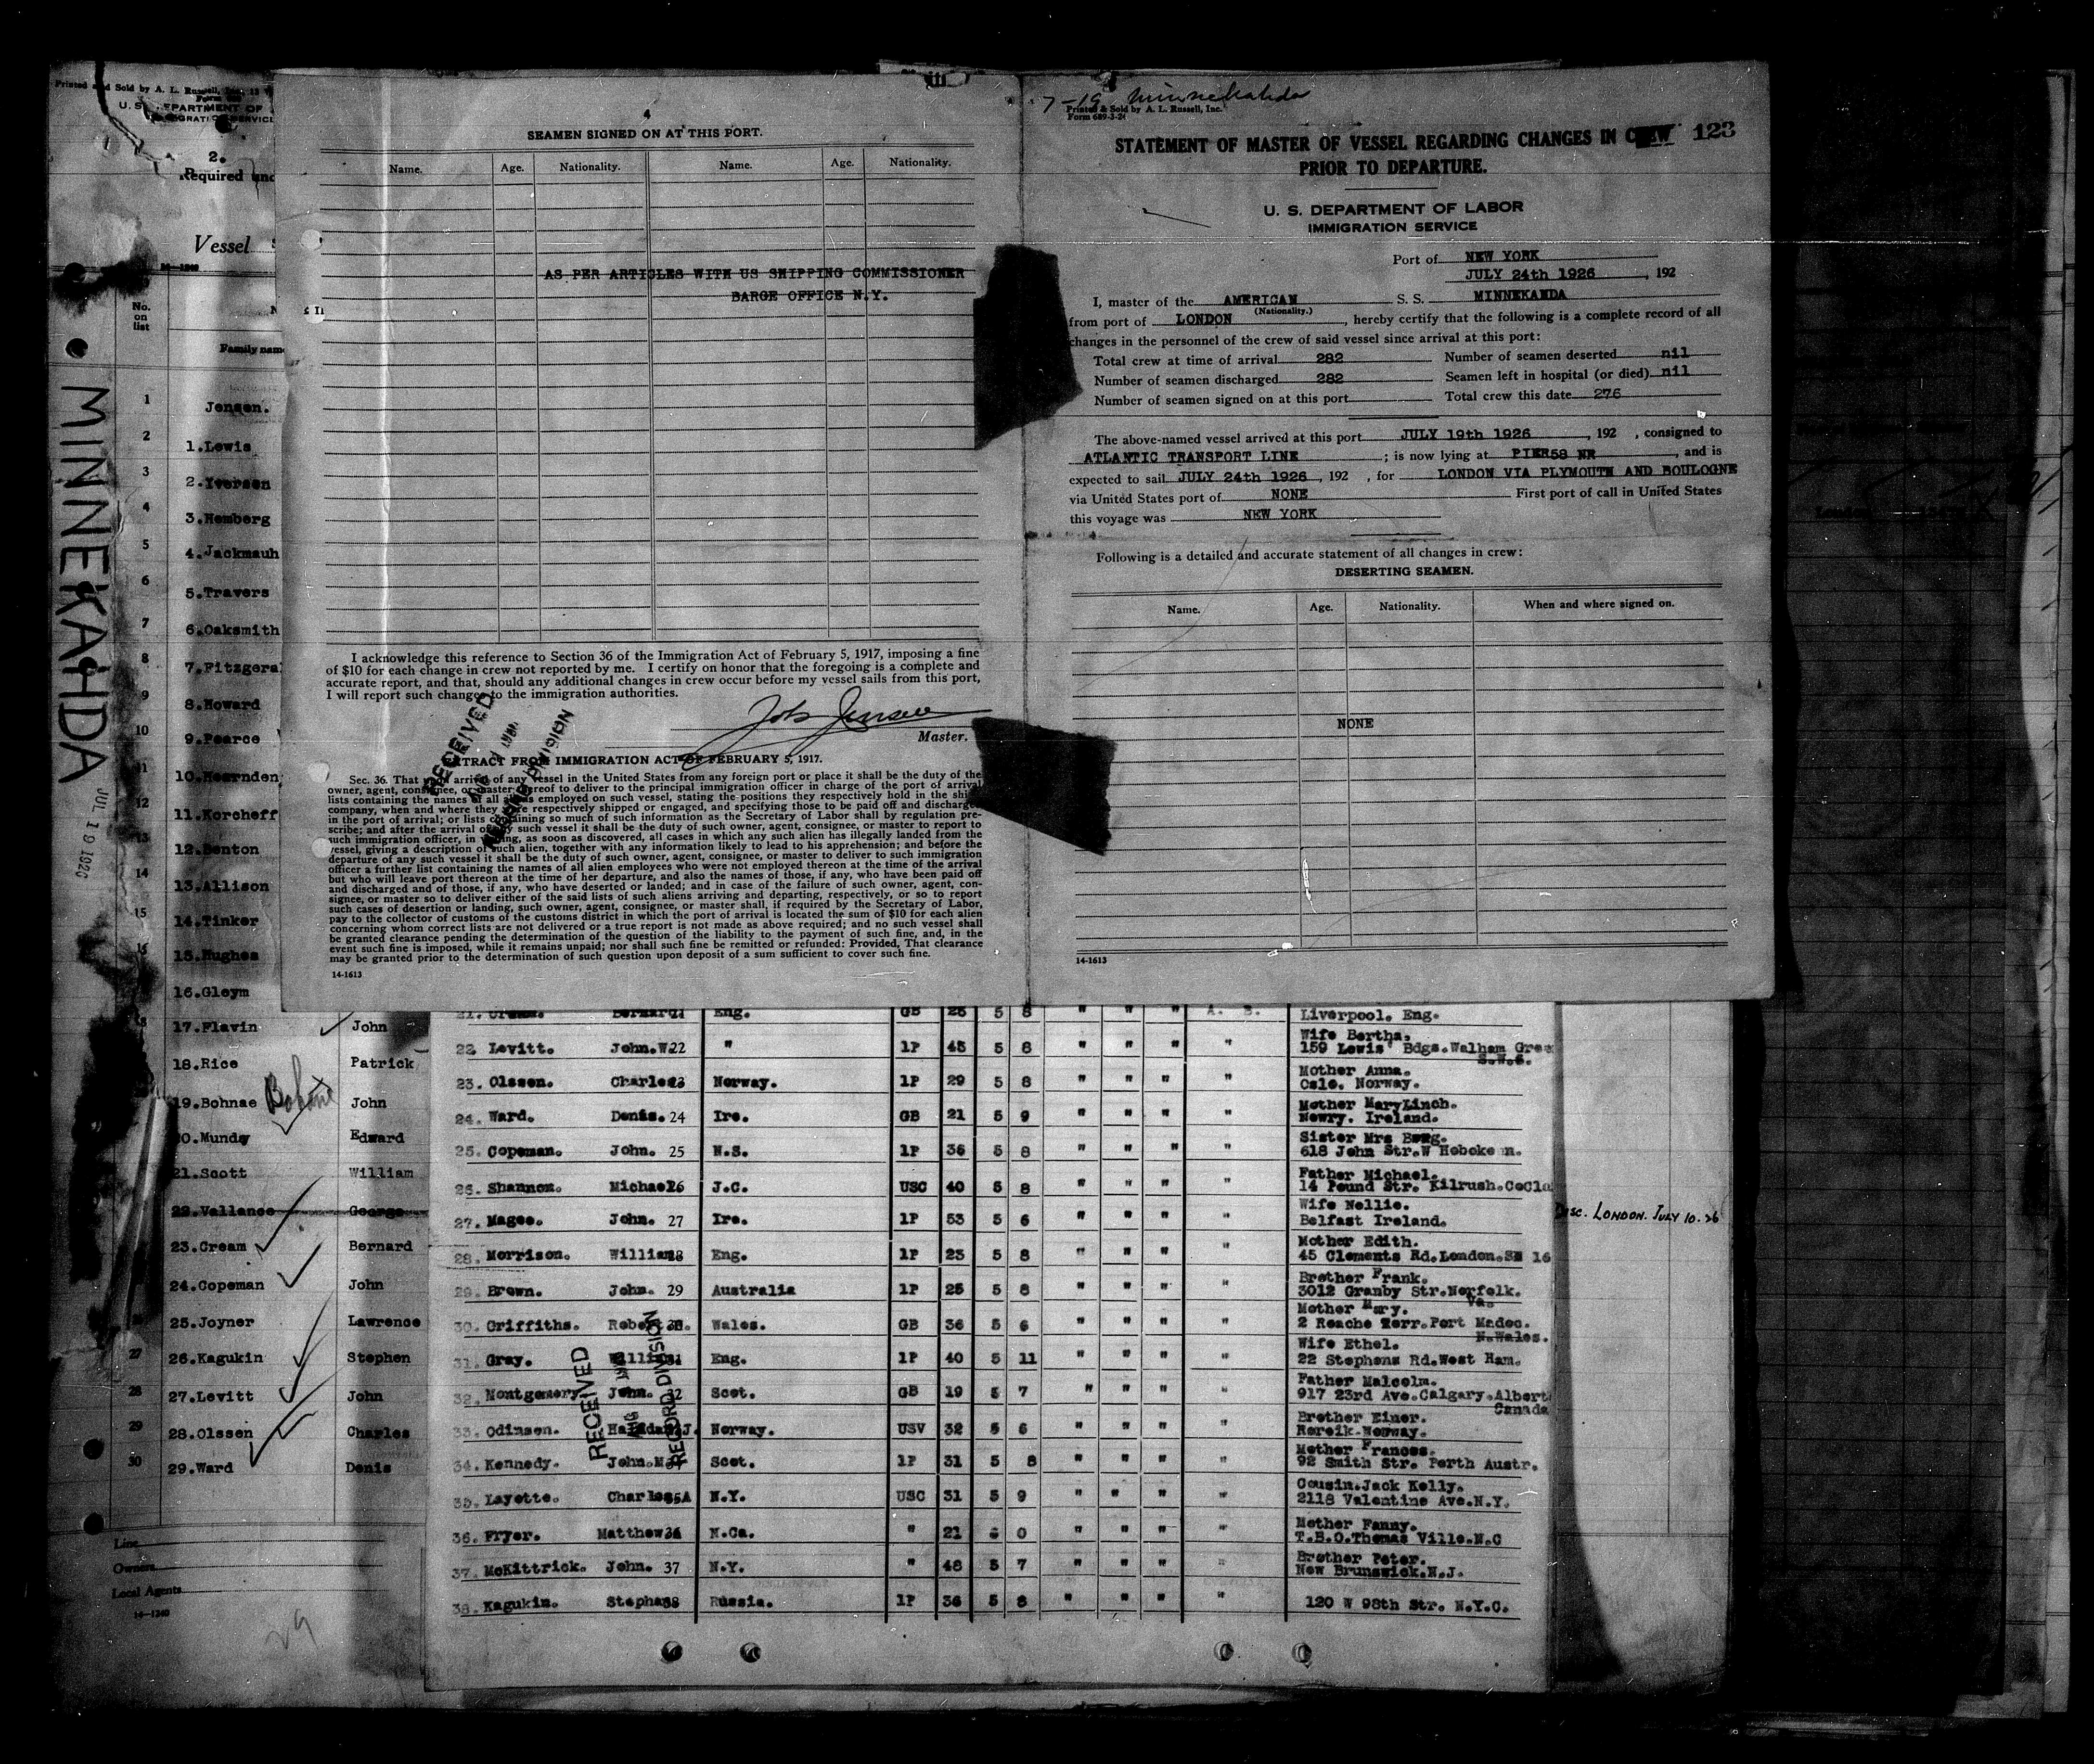 Printed and Sold by A. L. Russell, Inc.
U. S. DEPARTMENT OF
IMMIGRATION SERVICE
2.
Required und
Vessel
No. on list
Family name
MINNEKAHDA
JUL 19 192
1 Jensen.
2 1.Lewis
3 2.Iversen
4 3.Hemberg
5 4.Jackmauh
6 5.Travers
7 6.Oaksmith
8 7.Fitzgera
9 8.Howard
10 9.Pearce
11 10.Hearnden
12 11.Korcheff
13 12.Benton
14 13.Allison
15 14.Tinker
16 15.Hughes
16.Gleym
17.Flavin John
18.Rice Patrick
19.Bohnae John
20.Mundy Edward
21.Scott William
22.Vallance George
23.Cream Bernard
24.Copeman John
25.Joyner Lawrence
27 26.Kagukin Stephen
28 27.Levitt John
29 28.Olssen Charles
30 29.Ward Denis
Line
Owners
Local Agents
14—1240
29
4
SEAMEN SIGNED ON AT THIS PORT.
Name. Age. Nationality. Name. Age. Nationality.
AS PER ARTICLES WITH US SHIPPING COMMISSIONER
BARGE OFFICE N.Y.
I acknowledge this reference to Section 36 of the Immigration Act of February 5, 1917, imposing a fine
of $10 for each change in crew not reported by me. I certify on honor that the foregoing is a complete and
accurate report, and that, should any additional changes in crew occur before my vessel sails from this port,
I will report such changes to the immigration authorities.
Jensen
Master.
RECEIVED
EXTRACT FROM IMMIGRATION ACT OF FEBRUARY 5, 1917.
Sec. 36. That upon arrival of any vessel in the United States from any foreign port or place it shall be the duty of the
owner, agent, consignee, or master thereof to deliver to the principal immigration officer in charge of the port of arrival
lists containing the names of all aliens employed on such vessel, stating the positions they respectively hold in the ship's
company, when and where they were respectively shipped or engaged, and specifying those to be paid off and discharged
in the port of arrival; or lists containing so much of such information as the Secretary of Labor shall by regulation pre-
scribe; and after the arrival of any such vessel it shall be the duty of such owner, agent, consignee, or master to report to
such immigration officer, in writing, as soon as discovered, all cases in which any such alien has illegally landed from the
vessel, giving a description of such alien, together with any information likely to lead to his apprehension; and before the
departure of any such vessel it shall be the duty of such owner, agent, consignee, or master to deliver to such immigration
officer a further list containing the names of all alien employees who were not employed thereon at the time of the arrival
but who will leave port thereon at the time of her departure, and also the names of those, if any, who have been paid off
and discharged and of those, if any, who have deserted or landed; and in case of the failure of such owner, agent, con-
signee, or master so to deliver either of the said lists of such aliens arriving and departing, respectively, or so to report
such cases of desertion or landing, such owner, agent, consignee, or master shall, if required by the Secretary of Labor,
pay to the collector of customs of the customs district in which the port of arrival is located the sum of $10 for each alien
concerning whom correct lists are not delivered or a true report is not made as above required; and no such vessel shall
be granted clearance pending the determination of the question of the liability to the payment of such fine, and, in the
event such fine is imposed, while it remains unpaid; nor shall such fine be remitted or refunded: Provided, That clearance
may be granted prior to the determination of such question upon deposit of a sum sufficient to cover such fine.
14-1613
7-19 Minnekahda
Printed & Sold by A. L. Russell, Inc.
Form 689-3-24
STATEMENT OF MASTER OF VESSEL REGARDING CHANGES IN CREW 123
PRIOR TO DEPARTURE.
U. S. DEPARTMENT OF LABOR
IMMIGRATION SERVICE
Port of NEW YORK
JULY 24th 1926, 192
I, master of the AMERICAN S. S. MINNEKAHDA
(Nationality.)
from port of LONDON, hereby certify that the following is a complete record of all
changes in the personnel of the crew of said vessel since arrival at this port:
Total crew at time of arrival 282 Number of seamen deserted nil
Number of seamen discharged 282 Seamen left in hospital (or died) nil
Number of seamen signed on at this port Total crew this date 276
The above-named vessel arrived at this port JULY 19th 1926, 192 , consigned to
ATLANTIC TRANSPORT LINE; is now lying at PIER58 NR, and is
expected to sail JULY 24th 1926, 192 , for LONDON VIA PLYMOUTH AND BOULOGNE
via United States port of NONE First port of call in United States
this voyage was NEW YORK
Following is a detailed and accurate statement of all changes in crew:
DESERTING SEAMEN.
Name. Age. Nationality. When and where signed on.
NONE
14-1613
21. Cream. Bernard 21 Eng. GB 25 5 8 " " " A. B. Liverpool. Eng.
22. Levitt. John.W.22 " 1P 45 5 8 " " " " Wife Bertha. 159 Lewis Bdgs.Walham Gree S.W.6.
23. Olssen. Charles23 Norway. 1P 29 5 8 " " " " Mother Anna. Oslo. Norway.
24. Ward. Denis. 24 Ire. GB 21 5 9 " " " " Mother MaryLinch. Newry. Ireland.
25. Copeman. John. 25 N.S. 1P 36 5 8 " " " " Sister Mrs Berg. 618 John Str.W Hoboken.
26. Shannon. Michael26 J.C. USC 40 5 8 " " " " Father Michael. 14 Pound Str. Kilrush.CoCla
27. Magee. John. 27 Ire. 1P 53 5 6 " " " " Wife Nellie. Belfast Ireland. Disc. LONDON. JULY 10.26
28. Morrison. William28 Eng. 1P 23 5 8 " " " " Mother Edith. 45 Clements Rd.London.SE 16
29. Brown. John. 29 Australia 1P 25 5 8 " " " " Brother Frank. 3012 Granby Str.Norfolk. Va.
30. Griffiths. Robert 30. Wales. GB 36 5 6 " " " " Mother Mary. 2 Reache Terr.Port Madoc. N.Wales.
31. Gray. William31 Eng. 1P 40 5 11 " " " " Wife Ethel. 22 Stephens Rd.West Ham.
32. Montgomery John. 32 Scot. GB 19 5 7 " " " " Father Malcolm. 917 23rd Ave.Calgary.Albert Canada
33. Odinsen. Norway. USV 32 5 6 " " " " Brother Einer. Norway.
34. Kennedy. John.M34 Scot. 1P 31 5 8 " " " " Mother Frances. 92 Smith Str. Perth Austr.
35. Layette. Charles35A N.Y. USC 31 5 9 " " " " Cousin.Jack Kelly. 2118 Valentine Ave.N.Y.
36. Fryer. Matthew36 N.Ca. " 21 6 0 " " " " Mother Fanny. T.B.O.Thomas Ville.N.C
37. McKittrick. John. 37 N.Y. " 48 5 7 " " " " Brother Peter. New Brunswick.N.J.
38. Kagukin. Stephan38 Russia. 1P 36 5 8 " " " " 120 W 98th Str. N.Y.C.
RECEIVED
RECORD DIVISION